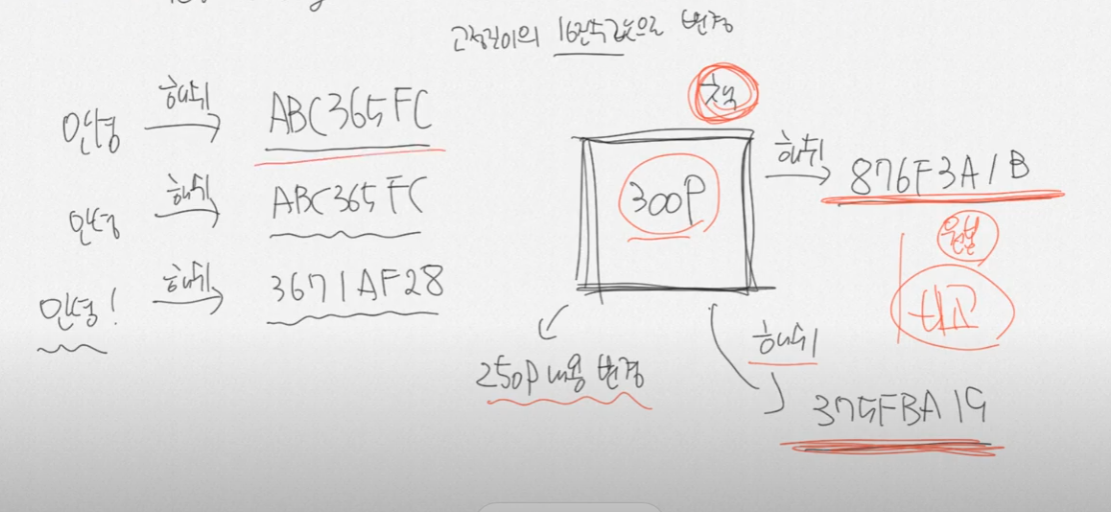 고정길이의 16진수 값으로 변경
안녕 해쉬 ABC365FC
안녕 해쉬 ABC365FC
안녕! 해쉬 3671AF28
책
300P
해쉬 876F3A1B
원본
비교
250P 내용 변경
해쉬
375FBA19